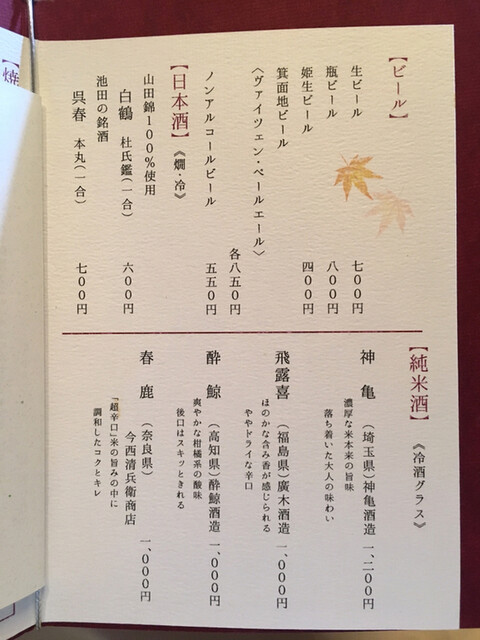 【ビール】
生ビール 七00円
瓶ビール 八00円
姫生ビール 四00円
箕面地ビール
〈ヴァイツェン・ペールエール〉
各八五0円
ノンアルコールビール 五五0円
【日本酒】《燗・冷》
山田錦100%使用
白鶴 杜氏鑑(一合) 六00円
池田の銘酒
呉春 本丸(一合) 七00円
【純米酒】《冷酒グラス》
神亀 (埼玉県)神亀酒造 一、二00円
濃厚な米本来の旨味
落ち着いた大人の味わい
飛露喜 (福島県)廣木酒造 一、000円
ほのかな含み香が感じられる
ややドライな辛口
酔鯨 (高知県)酔鯨酒造 一、000円
爽やかな柑橘系の酸味
後口はスキッときれる
春鹿 (奈良県)
今西清兵衛商店 一、000円
「超辛口」米の旨みの中に
調和したコクとキレ
【焼